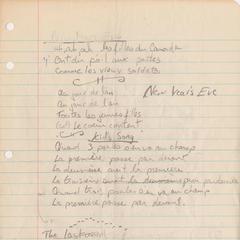 Ah ah ah les filles du Canada
Y' Ont du poil aux pattes
Comme les vieux soldats
au jour de l'an
New Year's Eve
au jour de l'an
Toutes les jeunes filles
le coeur content
Kid's Song
Quand 3 poules va au champ
La première passe par devant
La deuxième suit la première
La troisième
Quand trois poules va au champ
La première passe par devant.
The